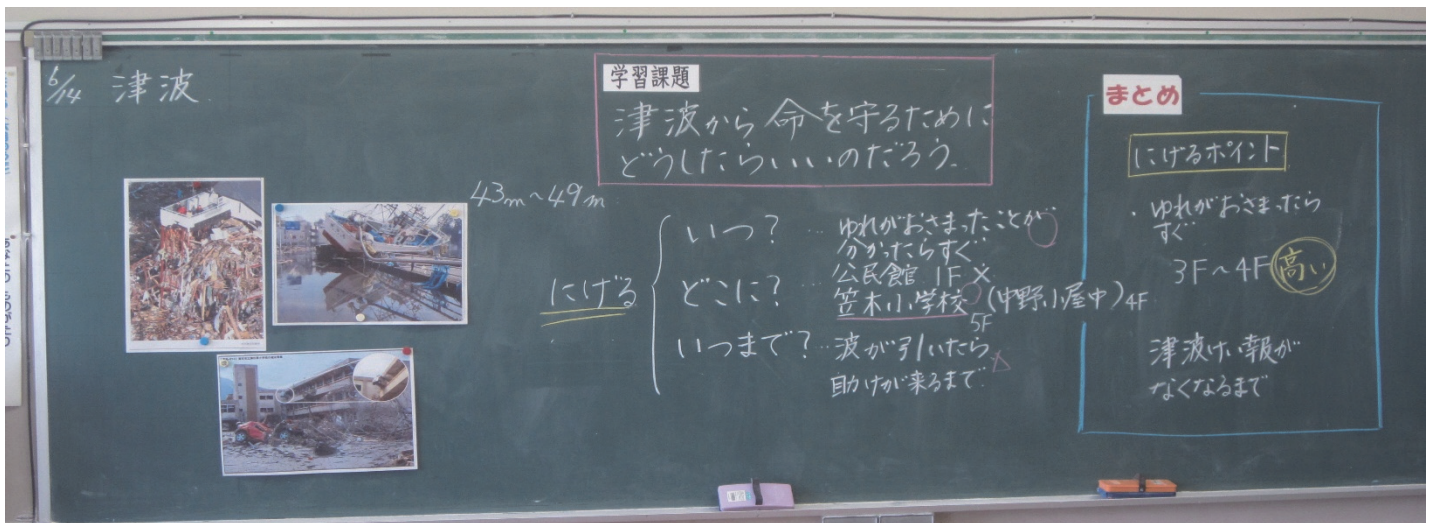 6/14 津波
43m～49m
学習課題
津波から命を守るために
どうしたらいいのだろう。
にげる
いつ？…ゆれがおさまったことが
分かったらすぐ
どこに？…公民館 1F ×
笠木小学校○(中野小屋中)4F
5F
いつまで？…波が引いたら
助けが来るまで △
まとめ
にげるポイント
・ゆれがおさまったら
すぐ
3F～4F 高い
津波けい報が
なくなるまで